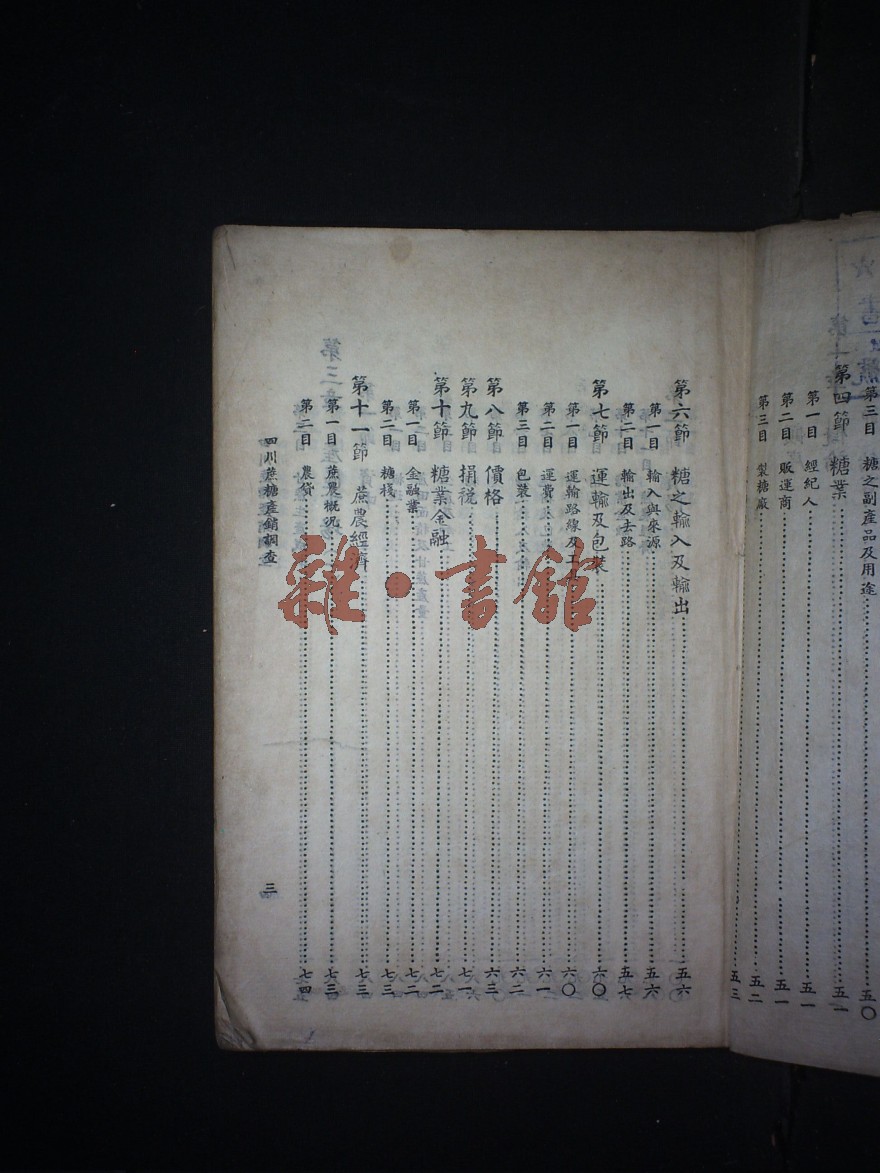 第三目 糖之副產品及用途 五〇
第四節 糖業 五一
第一目 經紀人 五一
第二目 販運商 五一
第三目 製糖廠 五二
五三
第六節 糖之輸入及輸出 五六
第一目 輸入與來源 五六
第二目 輸出及去路 五七
第七節 運輸及包裝 六〇
第一目 運輸路線及工 六〇
第二目 運費 六一
第三目 包裝 六二
第八節 價格 六三
第九節 捐稅 七一
第十節 糖業金融 七二
第一目 金融業 七二
第二目 糖棧 七三
第十一節 蔗農經濟 七三
第一目 蔗農概況 七三
第二目 農貸 七四
四川蔗糖產銷調查
三
雜·書館